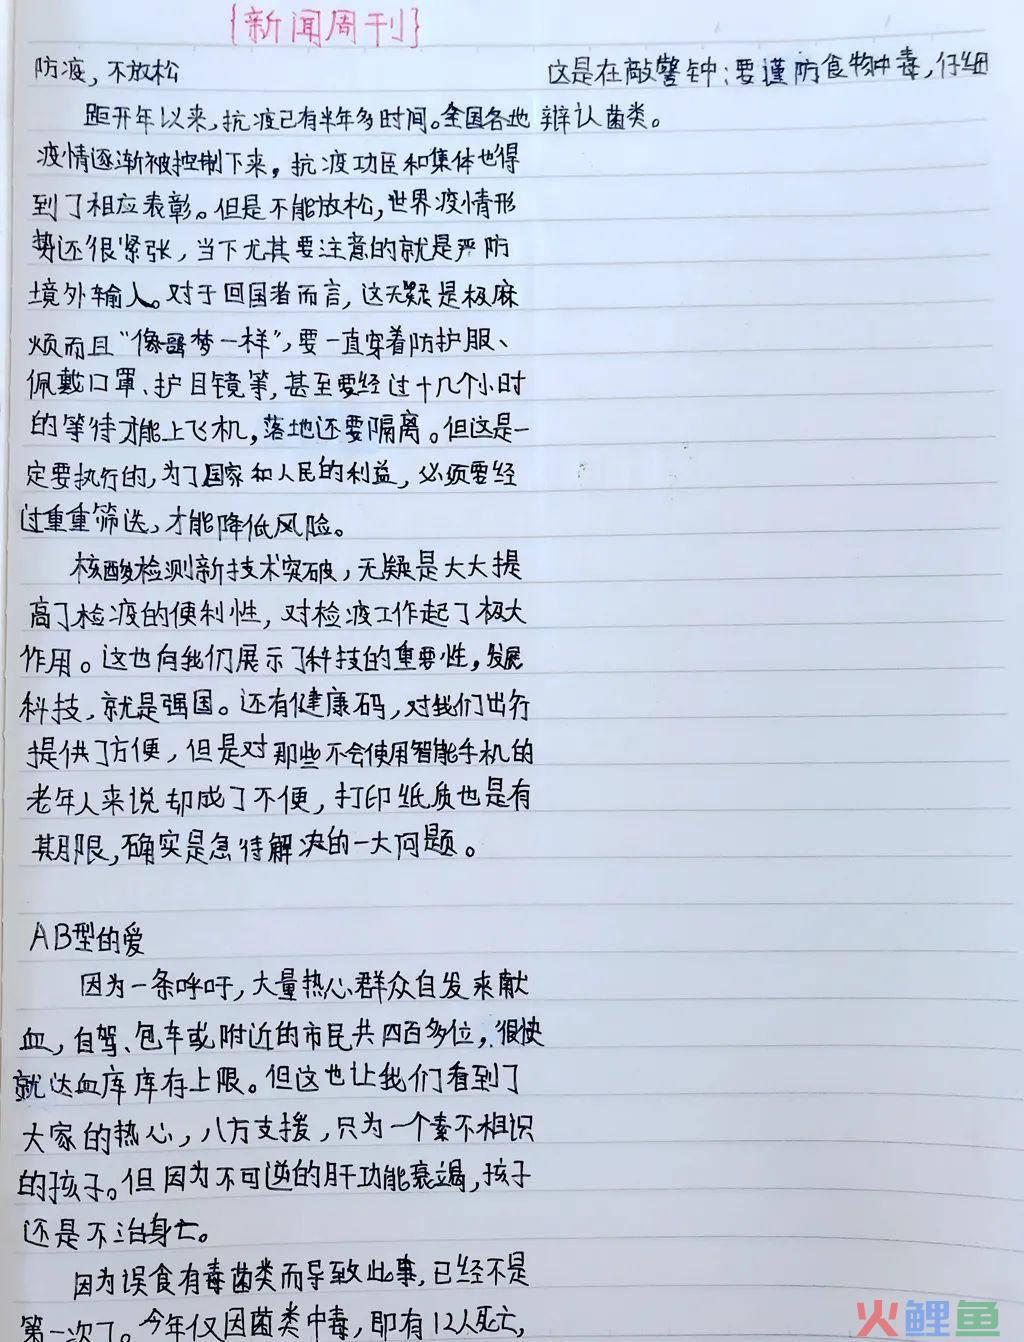 {新闻周刊}
防疫，不放松
距开年以来，抗疫已有半年多时间。全国各地
疫情逐渐被控制下来，抗疫功臣和集体也得
到了相应表彰。但是不能放松，世界疫情形
势还很紧张，当下尤其要注意的就是严防
境外输入。对于回国者而言，这无疑是极麻
烦而且“像噩梦一样”，要一直穿着防护服、
佩戴口罩、护目镜等，甚至要经过十几个小时
的等待才能上飞机，落地还要隔离。但这是一
定要执行的，为了国家和人民的利益，必须要经
过重重筛选，才能降低风险。
核酸检测新技术突破，无疑是大大提
高了检疫的便利性，对检疫工作起了极大
作用。这也向我们展示了科技的重要性，发展
科技，就是强国。还有健康码，对我们出行
提供了方便，但是对那些不会使用智能手机的
老年人来说却成了不便，打印纸质也是有
其期限，确实是急待解决的一大问题。
AB型的爱
因为一条呼吁，大量热心群众自发来献
血，自驾、包车或附近的市民共四百多位，很快
就达血库库存上限。但这也让我们看到了
大家的热心，八方支援，只为一个素不相识
的孩子。但因为不可逆的肝功能衰竭，孩子
还是不治身亡。
因为误食有毒菌类而导致此事，已经不是
第一次了。今年仅因菌类中毒，即有12人死亡，
这是在敲警钟：要谨防食物中毒，仔细
辩认菌类。
火鲤鱼